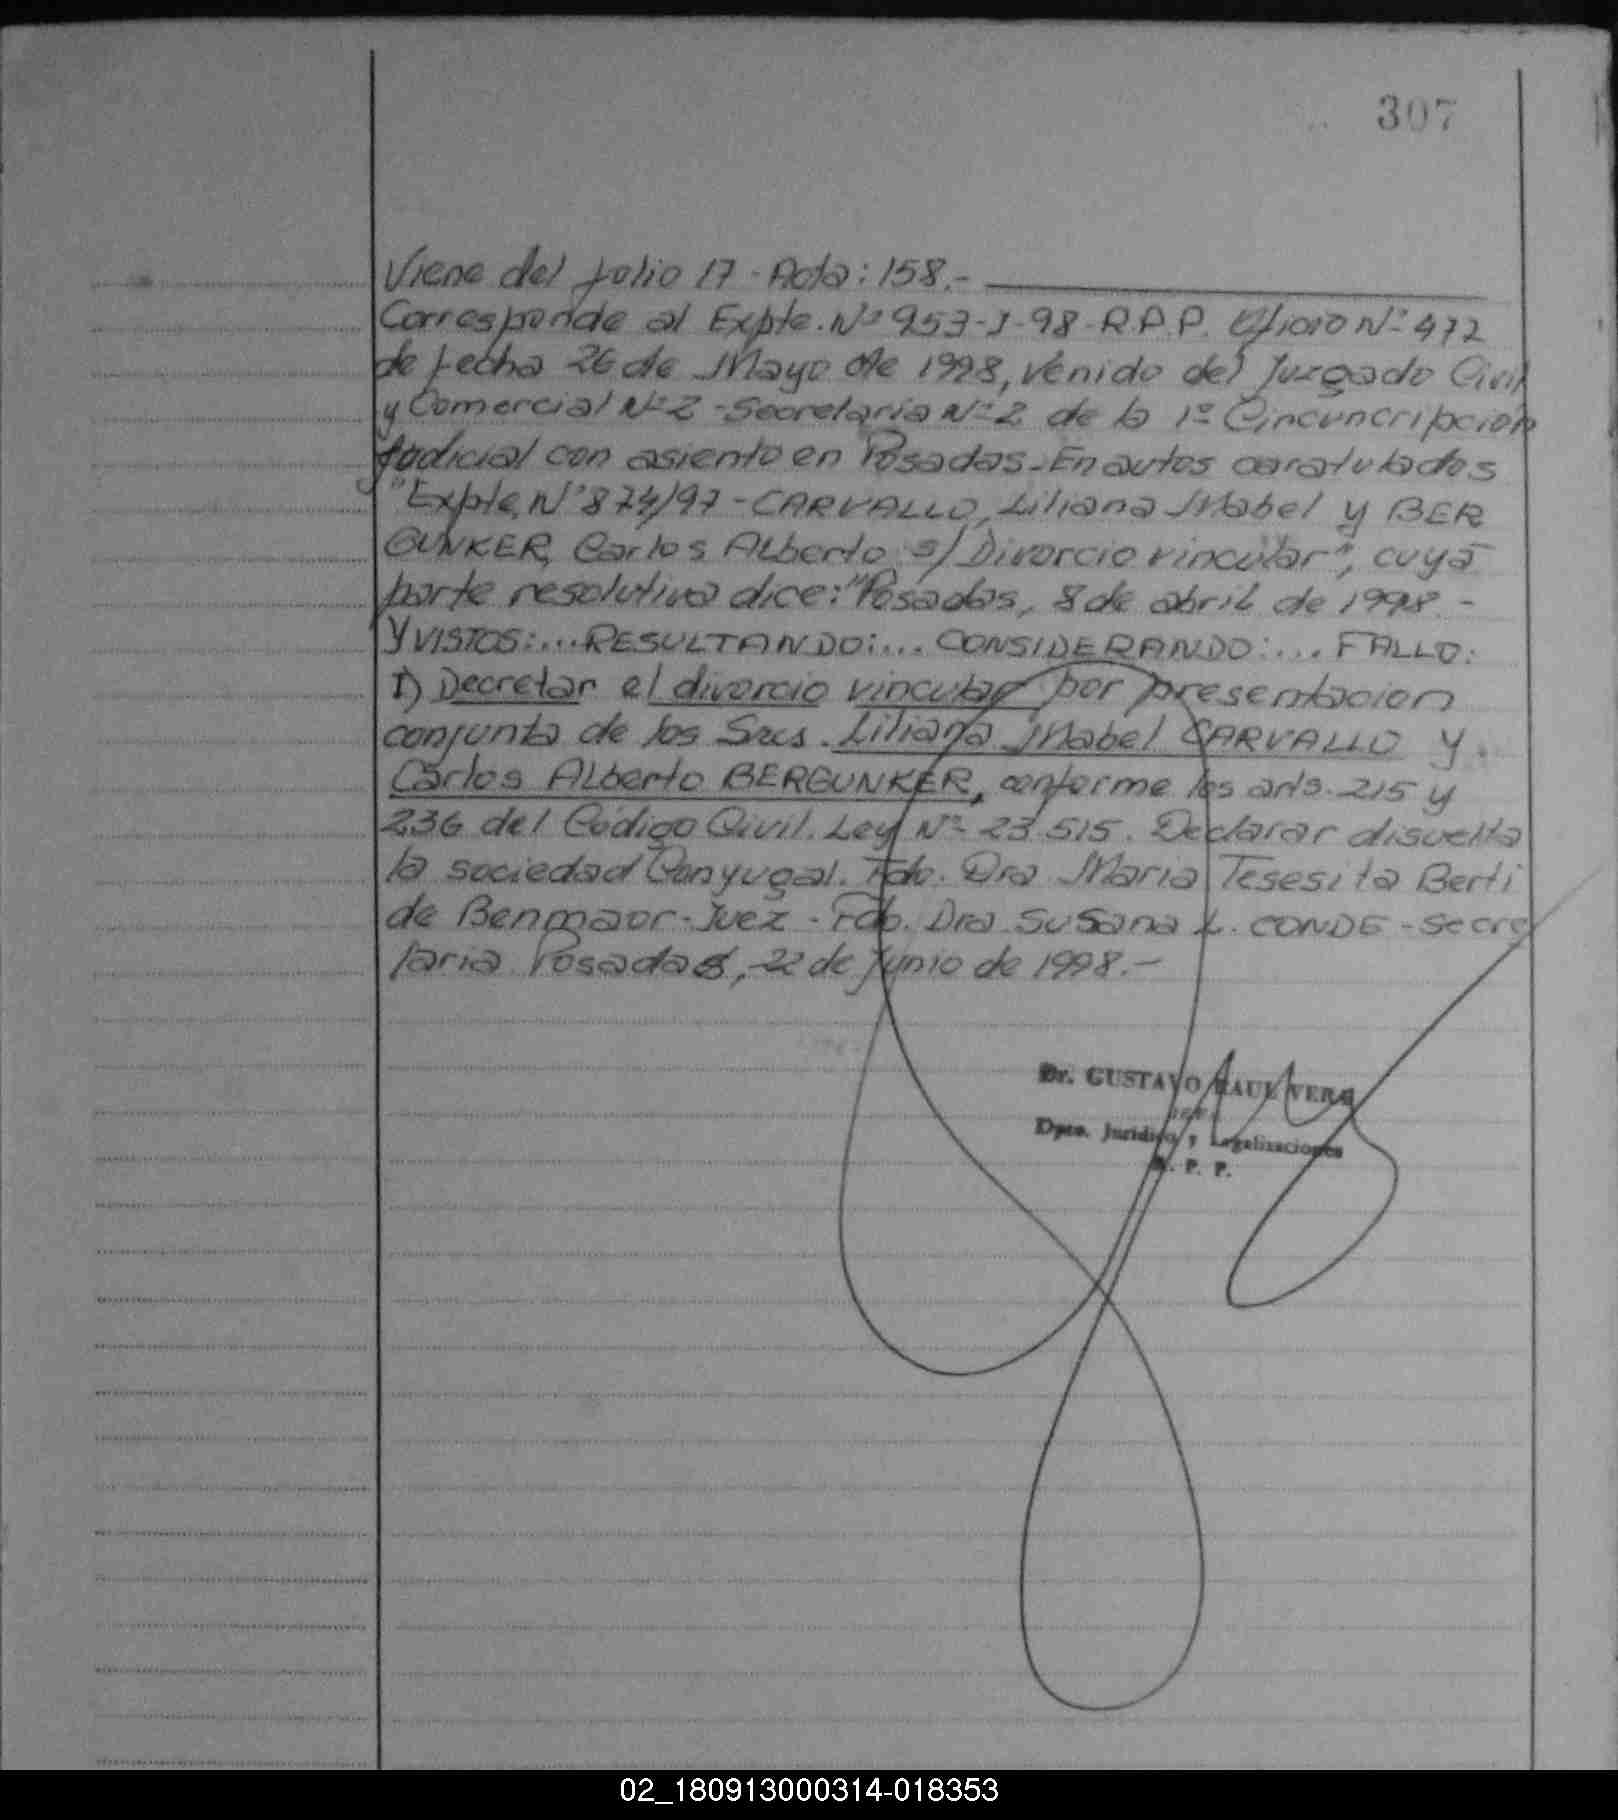 307
Viene del folio 17 - Acta: 158.-
Corresponde al Expte. Nº 953-J-98-R.P.P. Oficio Nº 472
de fecha 26 de Mayo de 1998, venido del Juzgado Civil
y Comercial Nº 2 - Secretaria Nº 2 de la 1º Circuncripción
Judicial con asiento en Posadas. En autos caratulados
"Expte, Nº 874/97 - CARVALLO, Liliana Mabel y BER
GUNKER, Carlos Alberto s/ Divorcio vincular", cuya
parte resolutiva dice: "Posadas, 8 de abril de 1998.-
Y VISTOS:... RESULTANDO:... CONSIDERANDO:... FALLO:
I) Decretar el divorcio vincular por presentacion
conjunta de los Sres. Liliana Mabel CARVALLO y
Carlos Alberto BERGUNKER, conforme los arts. 215 y
236 del Código Civil. Ley Nº 23.515. Declarar disuelta
la sociedad Conyugal. Fdo. Dra Maria Tesesita Berti
de Benmaor - Juez - Fdo. Dra Susana L. CONDE - Secre
taria. Posadas, 22 de Junio de 1998.-
Dr. GUSTAVO RAUL VERO
Dpto. Jurídico y Legalizaciones
R. P. P.
02_180913000314-018353